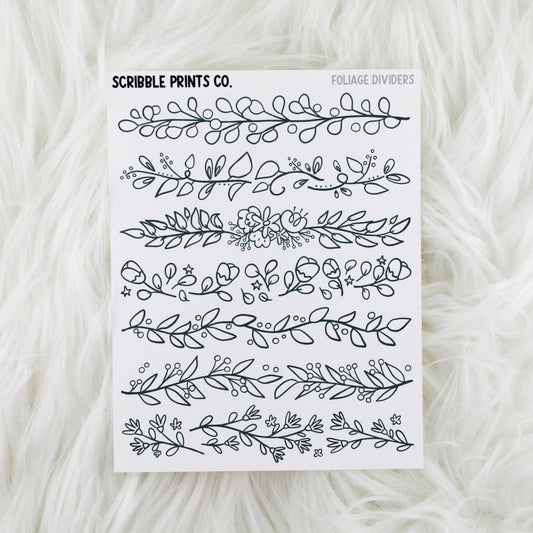 SCRIBBLE PRINTS CO.
FOLIAGE DIVIDERS